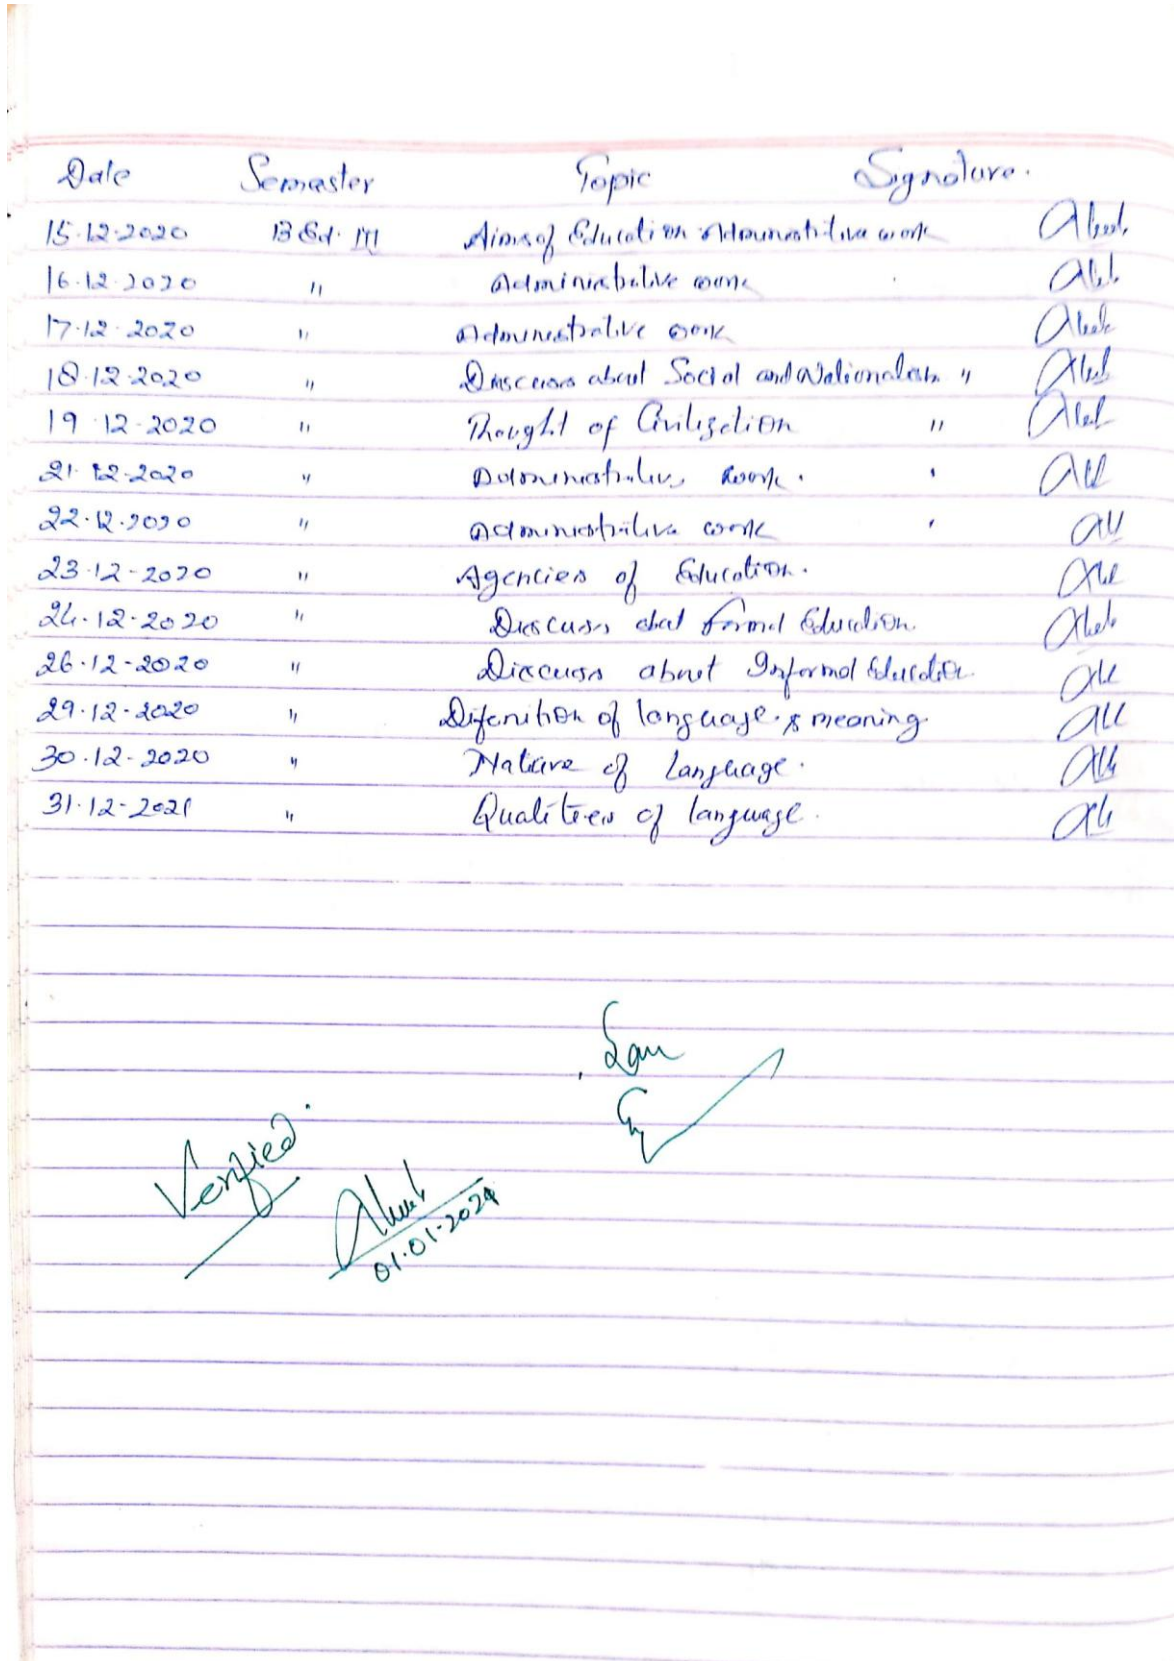 Date Semester Topic Signature.
15.12.2020 B Ed. III Aims of Education Administrative work
16.12.2020 " Administrative work
17.12.2020 " Administrative work
18.12.2020 " Discuss about Social and Nationalism "
19.12.2020 " Thought of Civilization "
21.12.2020 " Administrative work.
22.12.2020 " Administrative work
23.12-2020 " Agencies of Education.
24.12.2020 " Discuss about formal Education
26.12-2020 " Discuss about Informal Education
29.12-2020 " Difenition of language & meaning
30.12-2020 " Nature of Language.
31.12-2021 " Qualities of language.
Verified.
01.01-2021